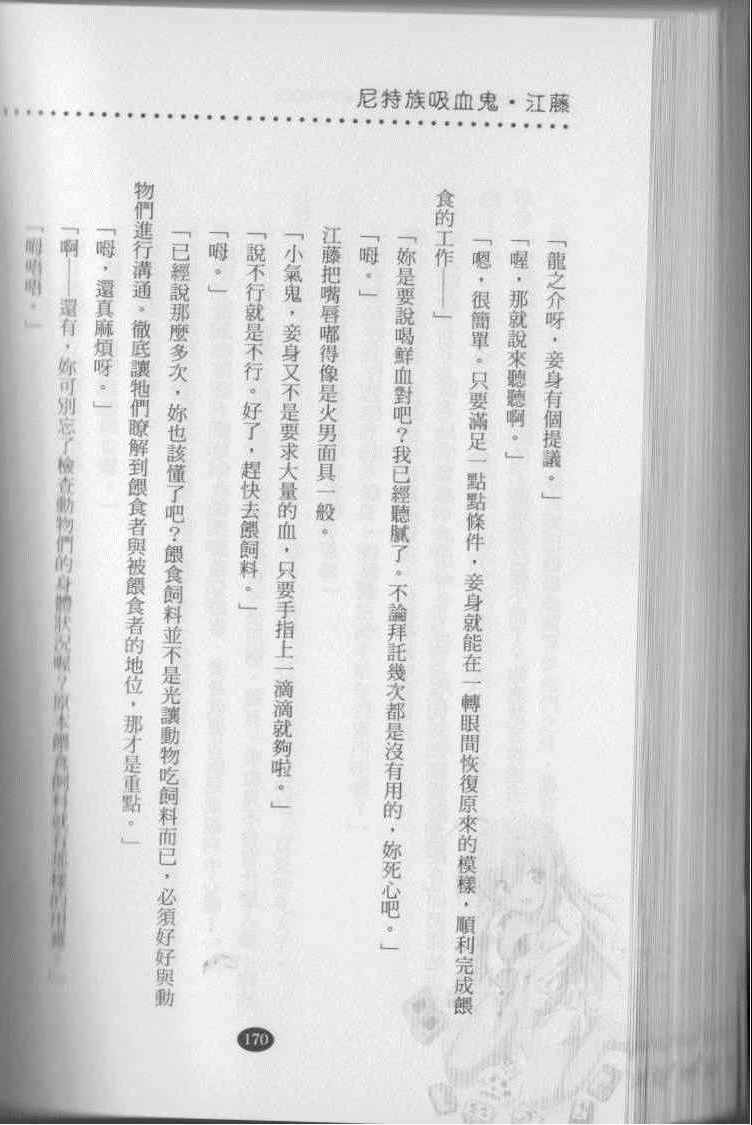 尼特族吸血鬼・江藤
「龍之介呀，妾身有個提議。」
「喔，那就說來聽聽啊。」
「嗯，很簡單。只要滿足一點點條件，妾身就能在一轉眼間恢復原來的模樣，順利完成餵
食的工作——」
「妳是要說喝鮮血對吧？我已經聽膩了。不論拜託幾次都是沒有用的，妳死心吧。」
「呣。」
江藤把嘴唇嘟得像是火男面具一般。
「小氣鬼，妾身又不是要求大量的血，只要手指上一滴滴就夠啦。」
「說不行就是不行。好了，趕快去餵飼料。」
「呣。」
「已經說那麼多次，妳也該懂了吧？餵食飼料並不是光讓動物吃飼料而已，必須好好與動
物們進行溝通。徹底讓牠們瞭解到餵食者與被餵食者的地位，那才是重點。」
「呣，還真麻煩呀。」
「啊——還有，妳可別忘了檢查動物們的身體狀況喔？原本餵食飼料就有那樣的
「呣唔唔。」
170